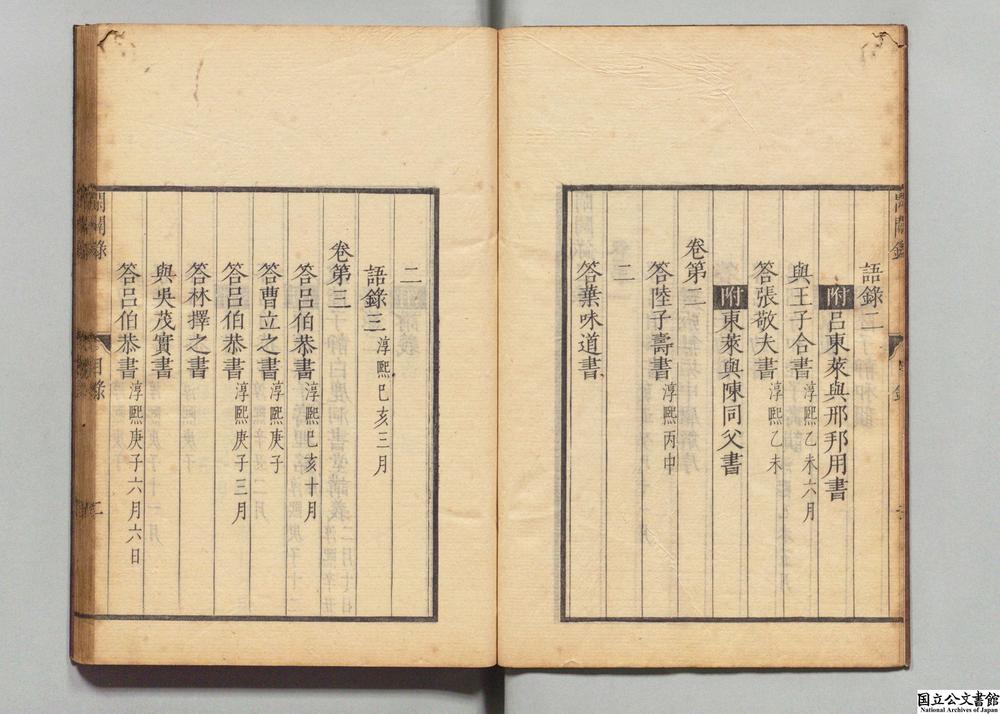 語錄二
附呂東萊與邢邦用書
與王子合書淳熙乙未六月
答張敬夫書淳熙乙未
附東萊與陳同父書
卷第二
答陸子壽書淳熙丙申
二
答葉味道書
二
語錄三淳熙巳亥三月
卷第三
答呂伯恭書淳熙巳亥十月
答曹立之書淳熙庚子
答呂伯恭書淳熙庚子三月
答林擇之書
與吳茂實書
答呂伯恭書淳熙庚子六月六日
閑闢錄
目錄
二
国立公文書館
National Archives of Japan